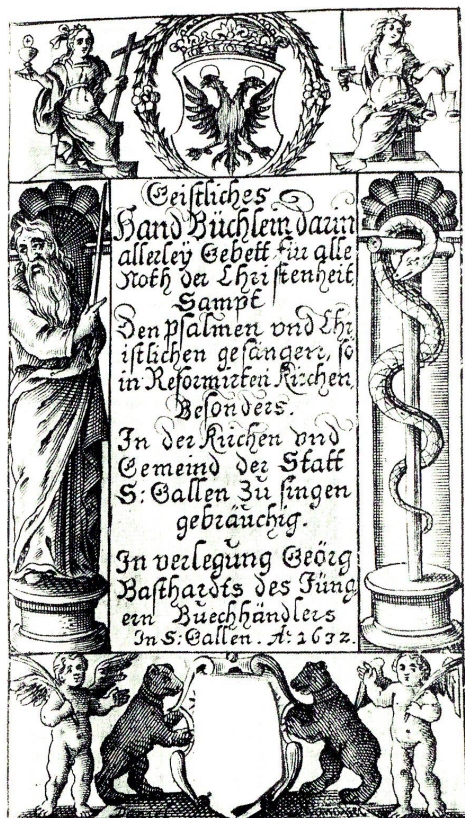 Geistliches
Hand Büchlein, darin
allerley Gebett für alle
Noth der Christenheit,
Sampt
Den Psalmen vnd Chr
istlichen gesängen, so
in Reformirten Kirchen,
Besonders.
In der Kirchen vnd
Gemeind der Statt
S: Gallen Zu singen
gebräuchig.
In verlegung Geörg
Basthardts des Jüng
ern Buechhändlers
In S: Gallen. A: 1632.